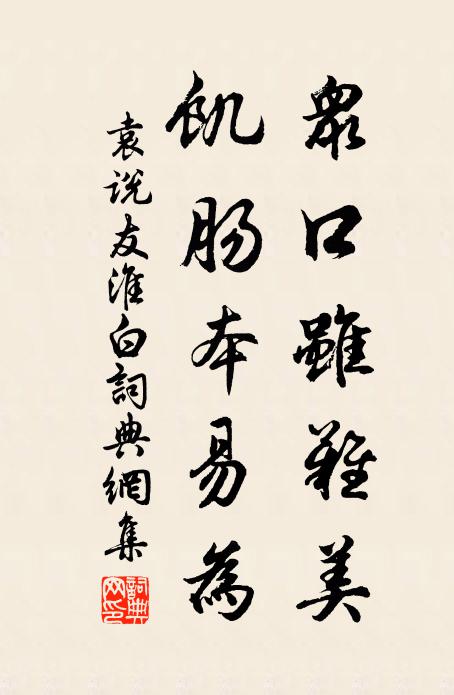 眾口雖難美
飢腸本易為
袁説友淮白詞典網集
詞典網印